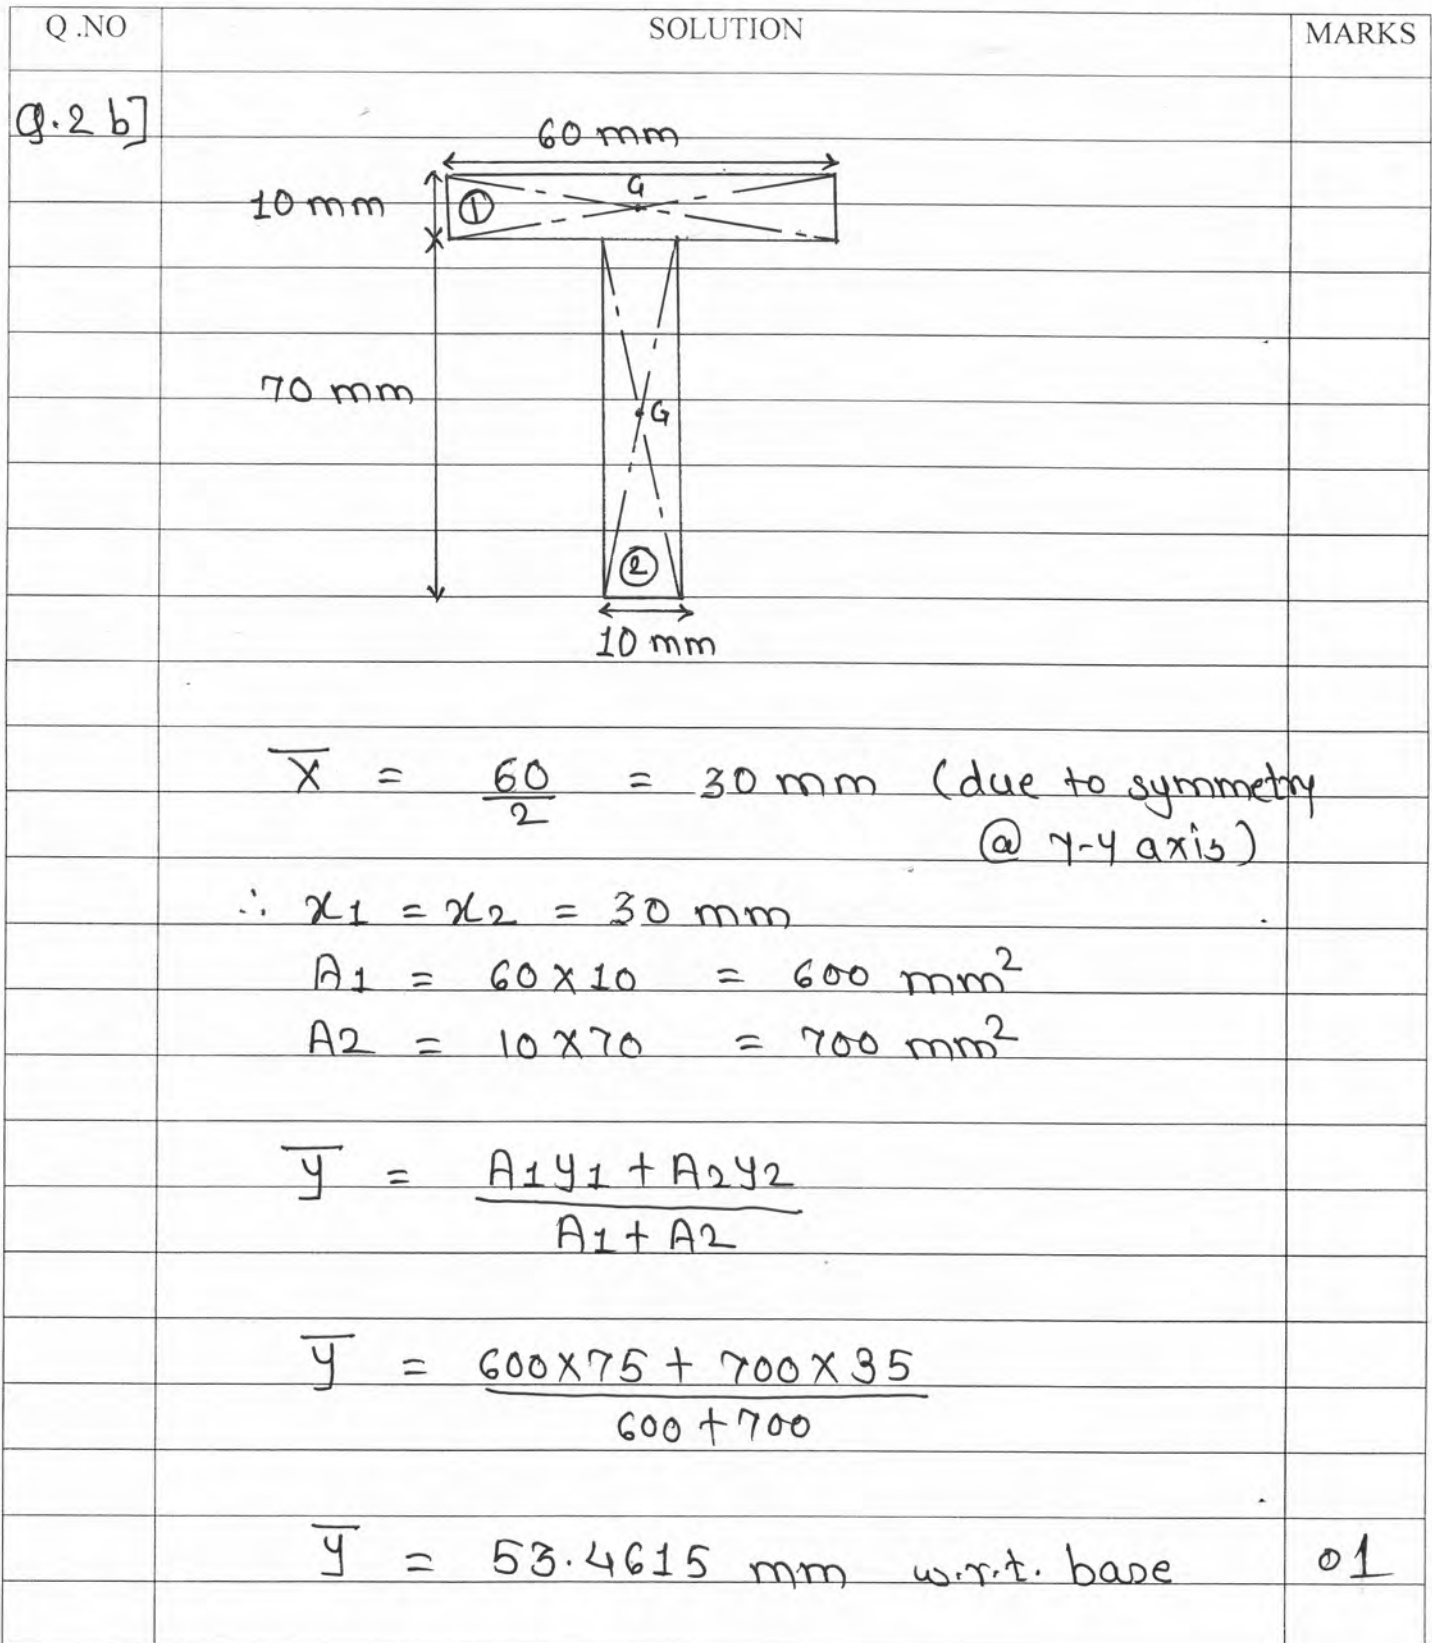 Q .NO SOLUTION MARKS
Q.2 b]
60 mm
10 mm
① G
70 mm
G
②
10 mm
X̅ = 60/2 = 30 mm (due to symmetry
@ Y-Y axis)
∴ x1 = x2 = 30 mm
A1 = 60 × 10 = 600 mm²
A2 = 10 × 70 = 700 mm²
y̅ = A1y1 + A2y2
A1 + A2
y̅ = 600×75 + 700×35
600 + 700
y̅ = 53.4615 mm w.r.t. base 01